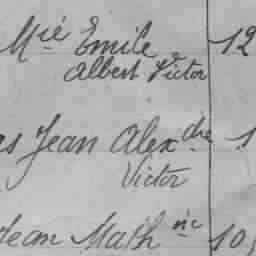 Mié Emile 12
Albert Victor
as Jean Alexdre 1
Victor
Jean Math nic 10